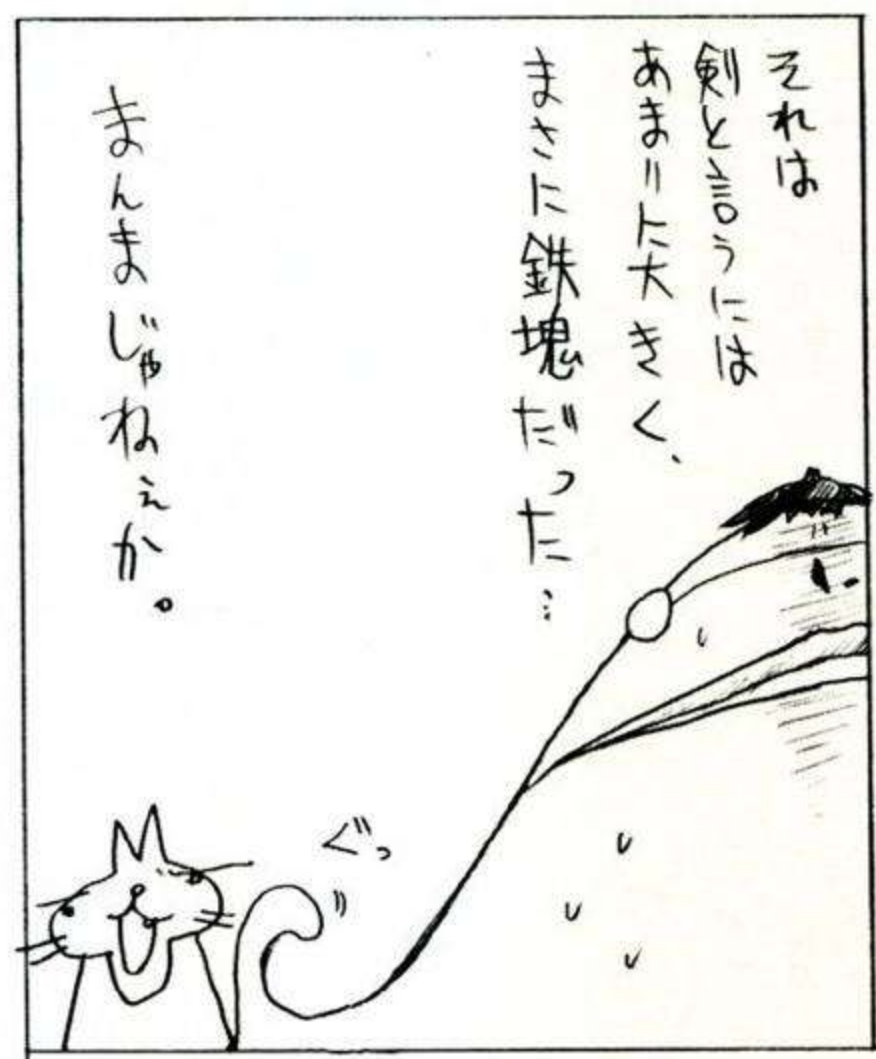 それは
剣と言うには
あまりに大きく、
まさに鉄塊だった…
まんまじゃねぇか。
ぐっ